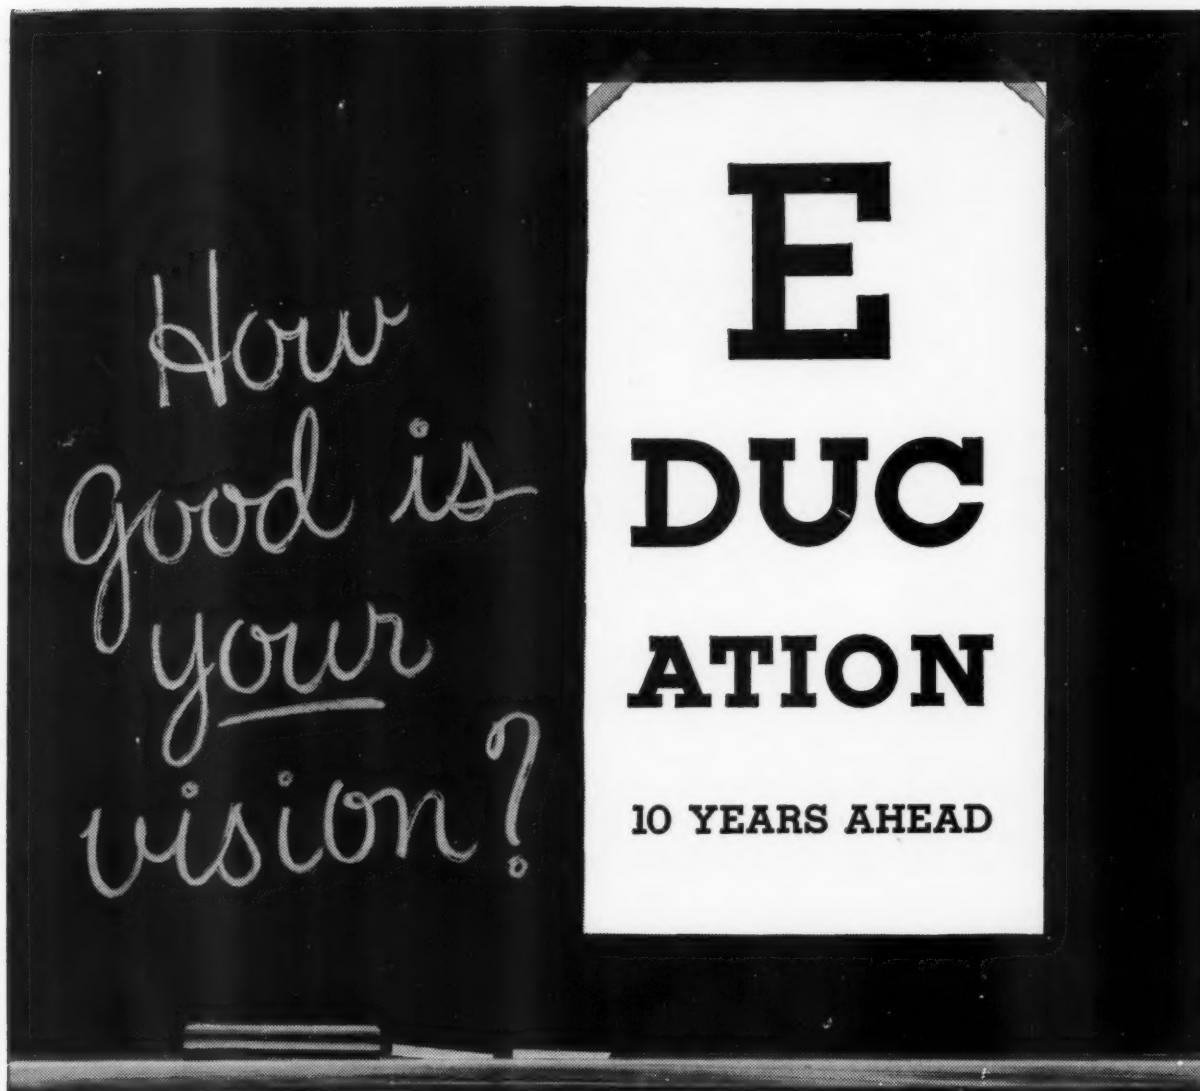 How
good is
your
vision?
E
DUC
ATION
10 YEARS AHEAD